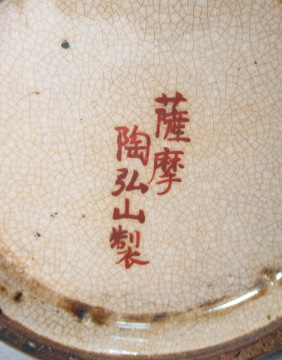 薩摩
陶弘山製